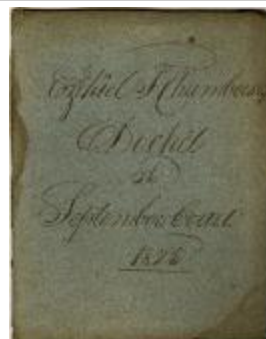 Ezekiel F Chambers
Docket
at
September Court